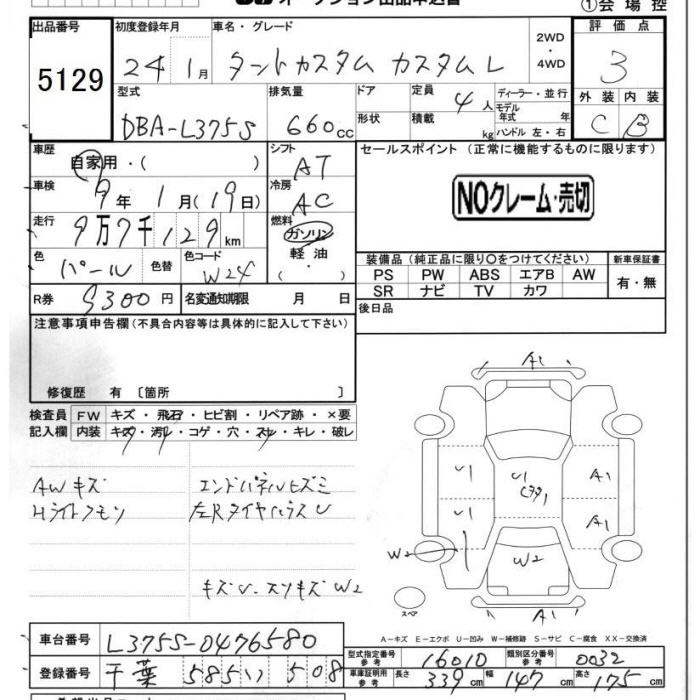 オークション出品申込書
①会場控
出品番号
5129
初度登録年月
24 1月
車名・グレード
タントカスタム カスタムL
2WD
・
4WD
評価点
3
外装 内装
C B
型式
DBA-L375S
排気量
660cc
ドア
形状
定員
4人
積載
kg
ディーラー・並行
モデル
年式 年
ハンドル 左・右
車歴
自家用・( )
シフト
AT
セールスポイント (正常に機能するものに限ります)
NOクレーム・売切
車検
9年 1月(19日)
冷房
AC
走行
9万7千129km
燃料
ガソリン
軽油
・( )
色
パール
色替
色コード
W24
装備品(純正品に限り○をつけてください)
新車保証書
PS PW ABS エアB AW
SR ナビ TV カワ
有・無
R券
9300円
名変通知期限 月 日
後日品
注意事項申告欄(不具合内容等は具体的に記入して下さい)
修復歴 有 〔箇所 〕
検査員
記入欄
FW キズ・飛石・ヒビ割・リペア跡・×要
内装 キズ・汚レ・コゲ・穴・スレ・キレ・破レ
AWキズ
Hライトクモリ
エンドパネルヒズミ
左Rタイヤハウス U
キズU・スリキズ W2
A1
U1
U1
A1
A1
W2
W2
A1
スペア
A−キズ E−エクボ U−凹み W−補修跡 S−サビ C−腐食 XX−交換済
車台番号
L375S-0476580
登録番号
千葉 585い 508
型式指定番号
参考
16010
類別区分番号
参考
0032
車庫証明用
参考
長さ 339cm 幅 147cm 高さ 175cm